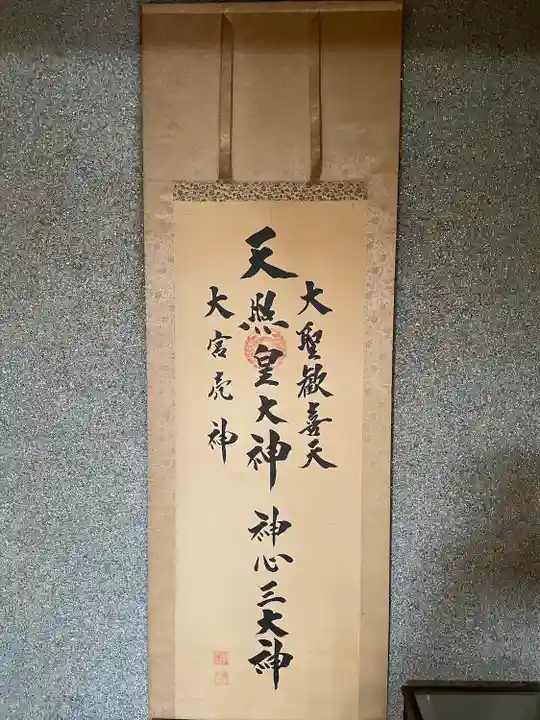 大聖歓喜天
天照皇大神 神心三大神
大宮売神